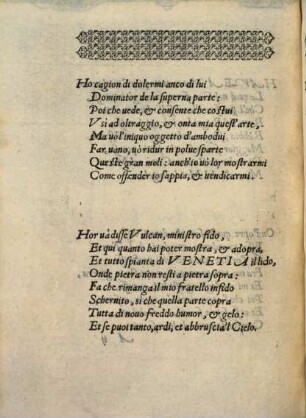 Ho cagion di dolermi anco di lui
Dominator de la superna parte:
Poi che uede, & consente che costui
Vsi ad oltraggio, & onta mia quest'arte,
Ma vò l'iniquo oggetto d'ambodui
Far uano, vò ridur in polue sparte
Queste gran moli: anch'io vò lor mostrarmi
Come offender io sappia, & vendicarmi.
Hor uà disse Vulcan, ministro fido,
Et qui quanto hai poter mostra, & adopra,
Et tutto spianta di VENETIA il lido,
Onde pietra non resti a pietra sopra:
Fa che rimanga il mio fratello infido
Schernito, si che quella parte copra
Tutta di nouo freddo humor, & gelo:
Et se puoi tanto, ardi, et abbruscia'l Cielo.